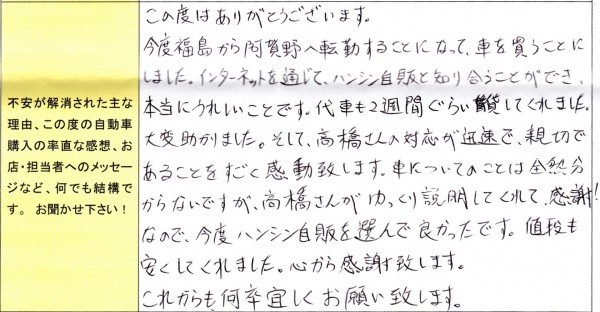 不安が解消された主な
理由、この度の自動車
購入の率直な感想、お
店・担当者へのメッセー
ジなど、何でも結構で
す。 お聞かせ下さい！
この度はありがとうございます。
今度福島から阿賀野へ転勤することになって、車を買うことに
しました。インターネットを通じて、ハンシン自販と知り合うことができ、
本当にうれしいことです。代車も2週間ぐらい貸してくれました。
大変助かりました。そして、高橋さんの対応が迅速で、親切で
あることをすごく感動致します。車についてのことは全然分
からないですが、高橋さんがゆっくり説明してくれて、感謝!
なので、今度ハンシン自販を選んで良かったです。値段も
安くしてくれました。心から感謝致します。
これからも何卒宜しくお願い致します。